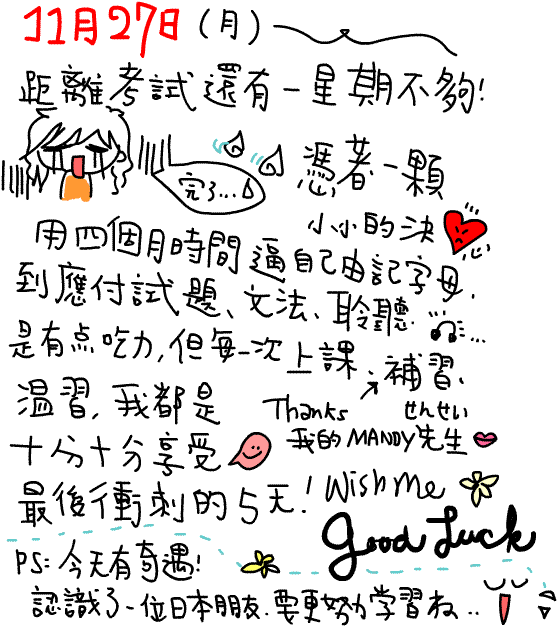 11月27日(月)
距離考試還有一星期不夠!
完了...
憑着一顆
小小的決心
用四個月時間逼自己由記字母,
到應付試題、文法、聆聽...
是有点吃力,但每一次上課、補習、
溫習,我都是
Thanks せんせい
十分十分享受
我的MANDY先生
最後衝刺的5天! Wish Me
Good Luck
PS:今天有奇遇!
認識了一位日本朋友.要更努力學習ね..